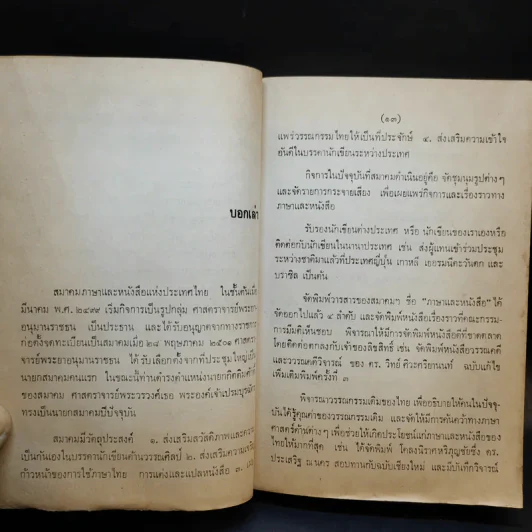 บอกเล่า
สมาคมภาษาและหนังสือแห่งประเทศไทย ในชั้นต้นเมื่อ
มีนาคม พ.ศ. ๒๔๙๙ เริ่มกิจการเป็นรูปกลุ่ม ศาสตราจารย์พระยา
อนุมานราชธน เป็นประธาน และได้รับอนุญาตจากทางราชการ
ก่อตั้งจดทะเบียนเป็นสมาคมเมื่อ ๒๘ พฤษภาคม ๒๕๐๑ ศาสตรา
จารย์พระยาอนุมานราชธน ได้รับเลือกตั้งจากที่ประชุมใหญ่เป็น
นายกสมาคมคนแรก ในขณะนี้ท่านดำรงตำแหน่งนายกกิตติมศักดิ์
ของสมาคม ศาสตราจารย์พระวรวงศ์เธอ พระองค์เจ้าเปรมบุรฉัตร
ทรงเป็นนายกสมาคมปีปัจจุบัน
สมาคมมีวัตถุประสงค์ ๑. ส่งเสริมสวัสดิภาพและความ
เป็นกันเองในบรรดานักเขียนด้านวรรณศิลป์ ๒. ส่งเสริมความเจริญ
ก้าวหน้าของการใช้ภาษาไทย การแต่งและแปลหนังสือ ๓.
(๑๓)
แพร่วรรณกรรมไทยให้เป็นที่ประจักษ์ ๔. ส่งเสริมความเข้าใจ
อันดีในบรรดานักเขียนระหว่างประเทศ
กิจการในปัจจุบันที่สมาคมดำเนินอยู่คือ จัดชุมนุมรูปต่างๆ
และจัดรายการกระจายเสียง เพื่อเผยแพร่กิจการและเรื่องราวทาง
ภาษาและหนังสือ
รับรองนักเขียนต่างประเทศ หรือ นักเขียนของเราเองหรือ
ติดต่อกับนักเขียนในนานาประเทศ เช่น ส่งผู้แทนเข้าร่วมประชุม
ระหว่างชาติมาแล้วที่ประเทศญี่ปุ่น เกาหลี เยอรมนีตะวันตก และ
บราซิล เป็นต้น
จัดพิมพ์วารสารของสมาคมฯ ชื่อ “ภาษาและหนังสือ” ได้
จัดออกไปแล้ว ๔ ลำดับ และจัดพิมพ์หนังสือเรื่องราวที่คณะกรรม-
การมีมติเห็นชอบ พิจารณาให้มีการจัดพิมพ์หนังสือดีที่ขาดตลาด
โดยติดต่อตกลงกับเจ้าของลิขสิทธิ์ เช่น จัดพิมพ์หนังสือวรรณคดี
และวรรณคดีวิจารณ์ ของ ดร. วิทย์ ศิวะศริยานนท์ ฉบับแก้ไข
เพิ่มเติมพิมพ์ครั้งที่ ๓
พิจารณาวรรณกรรมเดิมของไทย เพื่ออธิบายให้คนในปัจจุ-
บันได้รู้คุณค่าของวรรณกรรมเดิม และจัดให้มีการค้นคว้าทางภาษา
ศาสตร์ด้านต่างๆ เพื่อช่วยให้เกิดประโยชน์แก่ภาษาและหนังสือของ
ไทยให้มากที่สุด เช่น ได้จัดพิมพ์ โคลงนิราศหริภุญชัยซึ่ง ดร.
ประเสริฐ ณ นคร สอบทานกับฉบับเชียงใหม่ และมีบันทึกวิจารณ์